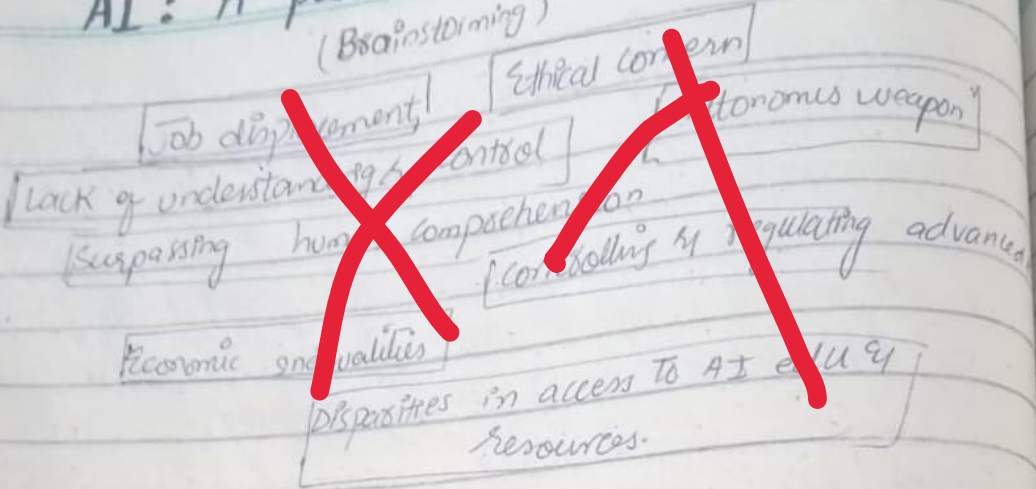 AI: A
(Brainstorming)
Job displacement, Ethical concern
Lack of understanding & control weapon
Surpassing human comprehension
Controlling & regulating advanced
Economic inequalities
Disparities in access to AI edu &
resources.